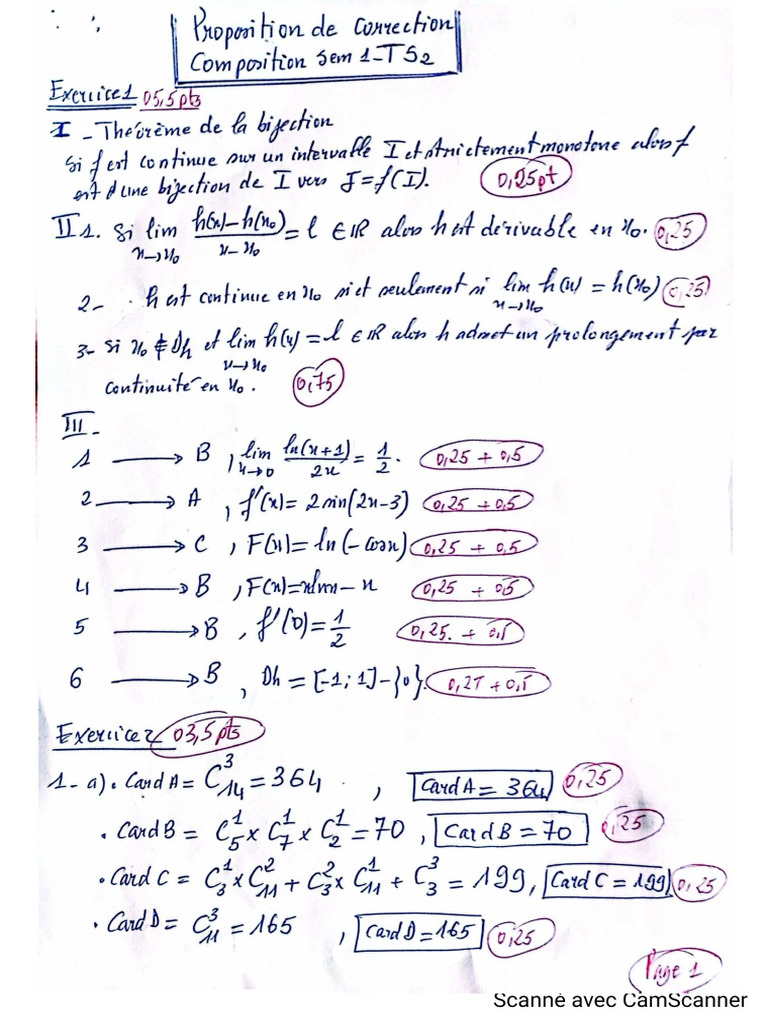 Proposition de correction
Composition Sem 1-TS2
Exercice1 05,5pts
I - Théorème de la bijection
Si f est continue sur un intervalle I et strictement monotone alors f
est d'une bijection de I vers J=f(I). 0,25pt
II 1. Si lim x→x₀ (h(x)-h(x₀))/(x-x₀) = l ∈ IR alors h est dérivable en x₀. 0,25
2- h est continue en x₀ si et seulement si lim x→x₀ h(x) = h(x₀) 0,25
3- Si x₀ ∉ Dh et lim x→x₀ h(x) = l ∈ IR alors h admet un prolongement par
continuité en x₀. 0,75
III -
1 → B , lim x→0 ln(x+1)/2x = 1/2. 0,25 + 0,5
2 → A , f'(x)= 2 sin(2x-3) 0,25 + 0,5
3 → C , F(x)= ln(-cosx) 0,25 + 0,5
4 → B , F(x)=xlnx - x 0,25 + 0,5
5 → B , f'(0)= 1/2 0,25. + 0,5
6 → B , Dh = [-1;1]-{0}. 0,25 + 0,5
Exercice2 03,5pts
1- a) . Card A = C³₁₄ = 364 , Card A = 364 0,25
. Card B = C¹₅ x C¹₇ x C¹₂ = 70 , Card B = 70 0,25
. Card C = C¹₃ x C²₁₁ + C²₃ x C¹₁₁ + C³₃ = 199, Card C = 199 0,25
. Card D = C³₁₁ = 165 , Card D = 165 0,25
Page 1
Scanné avec CamScanner